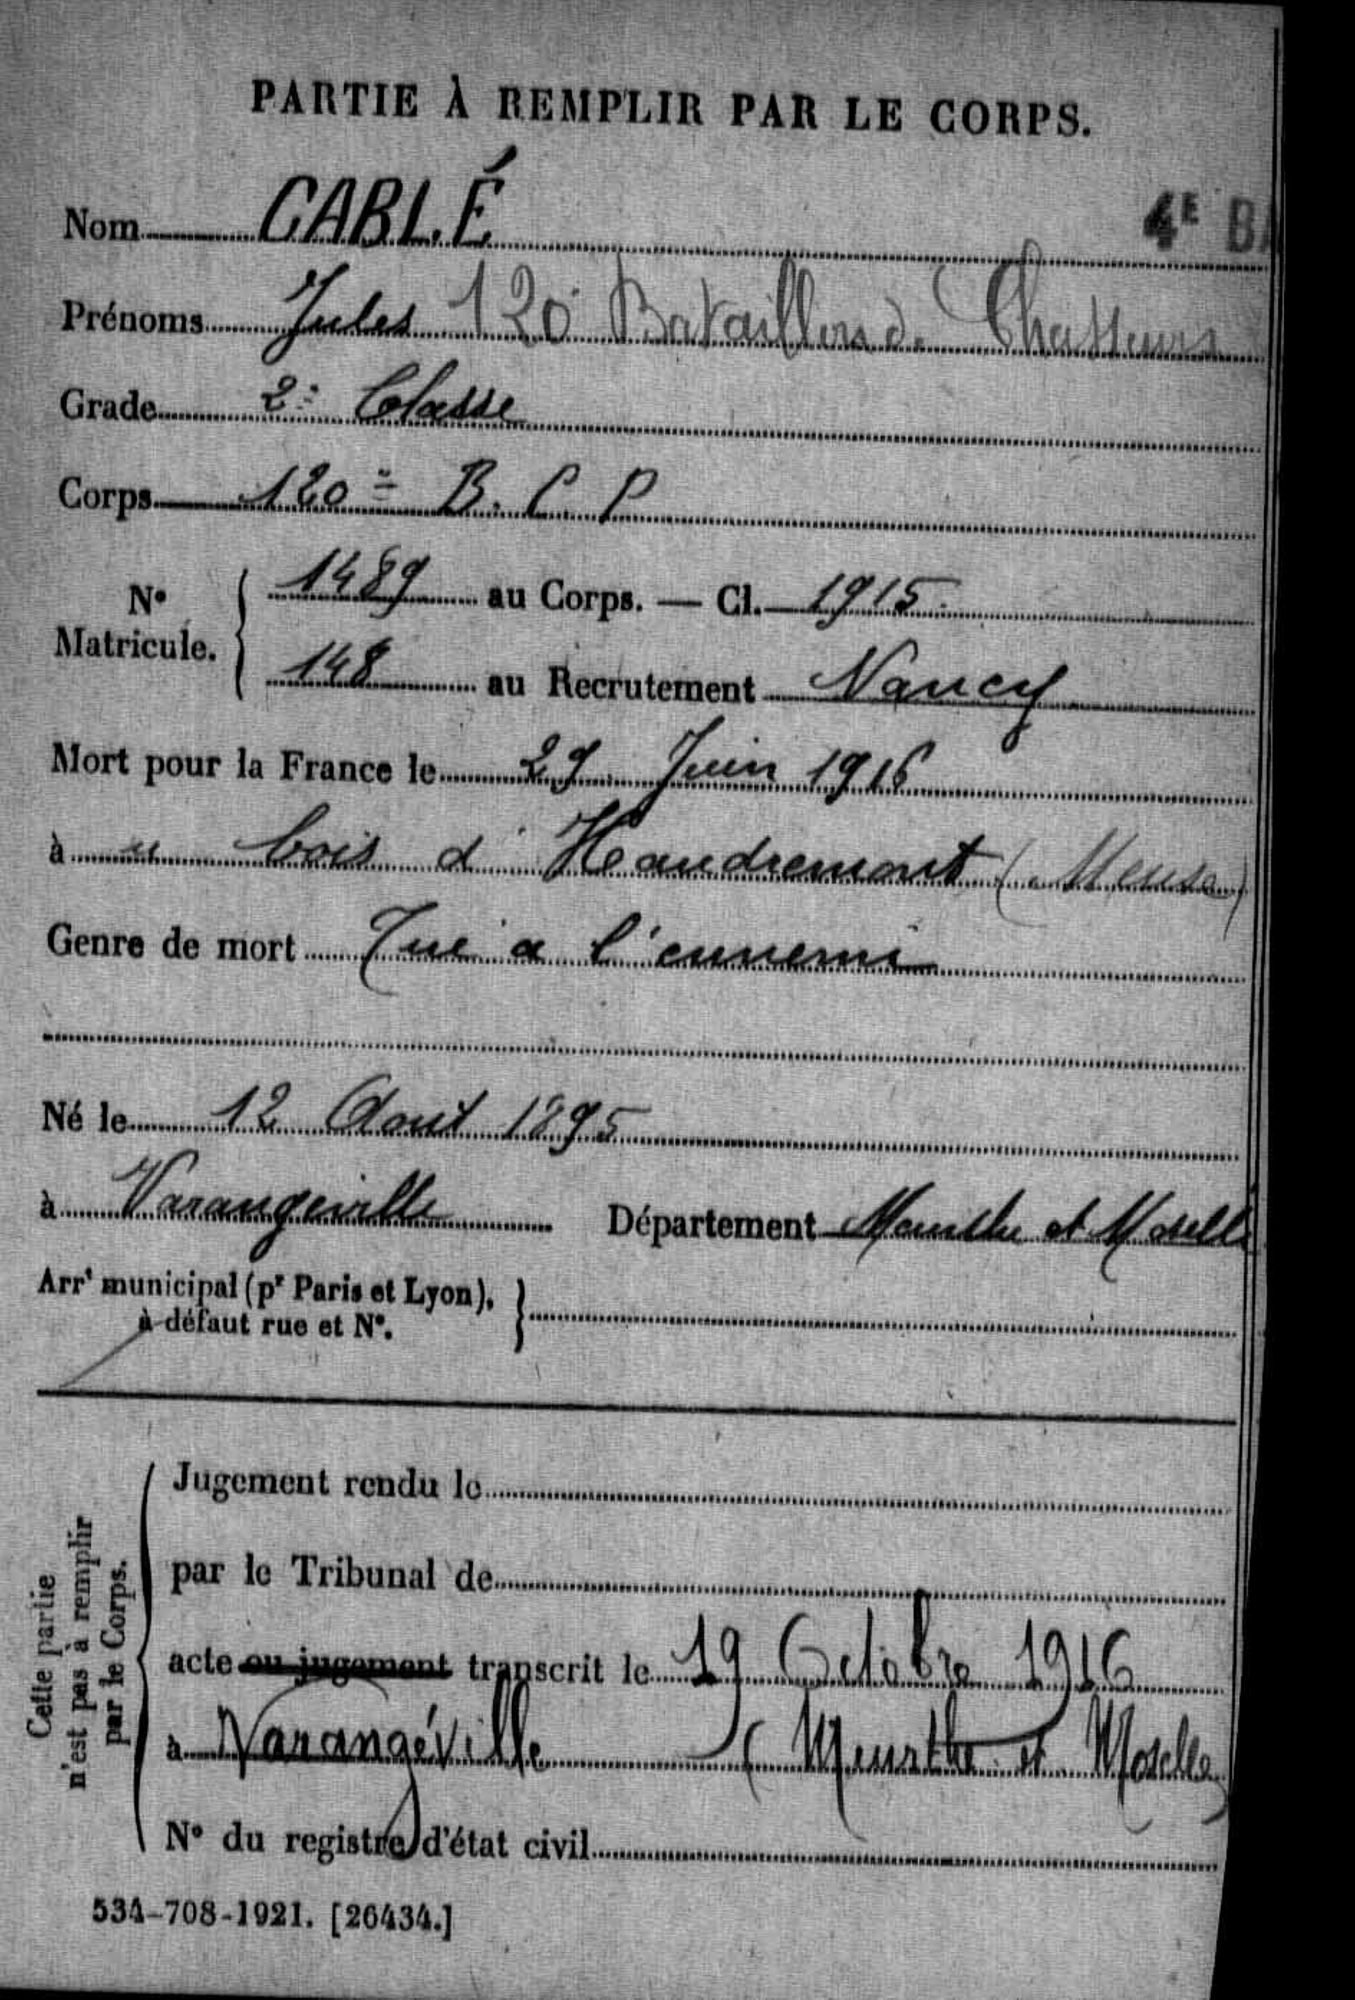 PARTIE À REMPLIR PAR LE CORPS.
Nom CABLÉ
4E BA
Prénoms Jules 120e Bataillon de Chasseurs
Grade 2e Classe
Corps 120e B. C. P
N° Matricule. { 1489 au Corps. — Cl. 1915.
148 au Recrutement Nancy
Mort pour la France le 29 Juin 1916
à u bois d'Haudremont (Meuse)
Genre de mort Tué a l'ennemi
Né le 12 Aout 1895
à Varangeville Département Meurthe et Moselle
Arrt municipal (pr Paris et Lyon), }
à défaut rue et N°.
Cette partie
n'est pas à remplir
par le Corps.
Jugement rendu le
par le Tribunal de
acte ou jugement transcrit le 19 Octobre 1916
à Varangéville (Meurthe et Moselle)
N° du registre d'état civil
534-708-1921. [26434.]